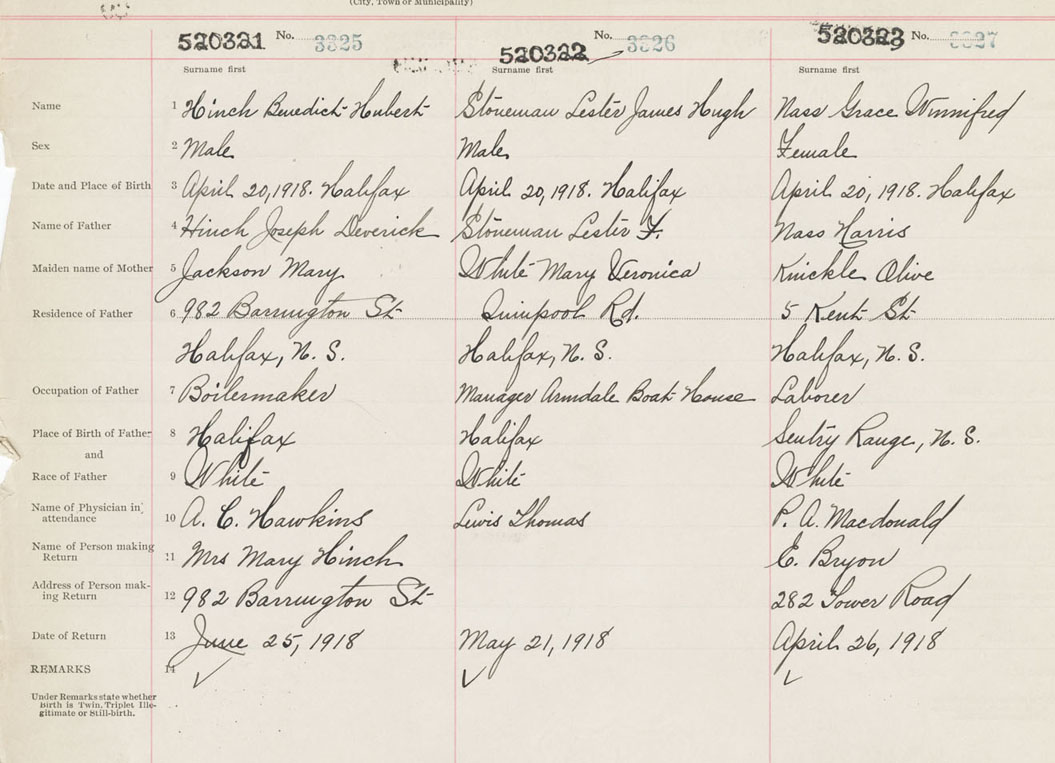 (City, Town or Municipality)
520321 No. 3325 520322 No. 3326 520323 No. 3327
Surname first Surname first Surname first
Name 1 Hinch Benedict Hubert Stoneman Lester James Hugh Nass Grace Winnifred
Sex 2 Male Male Female
Date and Place of Birth 3 April 20, 1918. Halifax April 20, 1918. Halifax April 20, 1918. Halifax
Name of Father 4 Hinch Joseph Deverick Stoneman Lester F. Nass Harris
Maiden name of Mother 5 Jackson Mary White Mary Veronica Knickle Olive
Residence of Father 6 982 Barrington St Quinpool Rd. 5 Kent St
Halifax, N. S. Halifax, N. S. Halifax, N. S.
Occupation of Father 7 Boilermaker Manager Armdale Boat House Laborer
Place of Birth of Father 8 Halifax Halifax Sentry Range, N. S.
and
Race of Father 9 White White White
Name of Physician in attendance 10 A. C. Hawkins Lewis Thomas P. A. Macdonald
Name of Person making Return 11 Mrs Mary Hinch E. Bryon
Address of Person mak-ing Return 12 982 Barrington St 282 Tower Road
Date of Return 13 June 25, 1918 May 21, 1918 April 26, 1918
REMARKS 14 ✓ ✓ ✓
Under Remarks state whether
Birth is Twin, Triplet Ille-
gitimate or Still-birth.